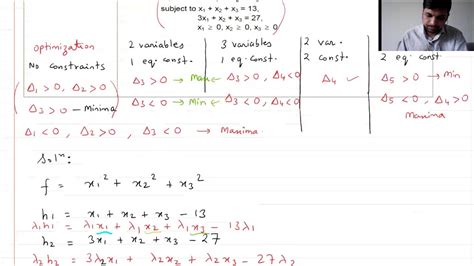 subject to x₁ + x₂ + x₃ = 13,
3x₁ + x₂ + x₃ = 27,
x₁ ≥ 0, x₂ ≥ 0, x₃ ≥ 0
optimization
No constraints
Δ₁ > 0, Δ₂ > 0
Δ₃ > 0 → Minima
Δ₁ < 0, Δ₂ > 0, Δ₃ < 0 → Maxima
2 variables
1 eq. const.
Δ₃ > 0 → Max
Δ₃ < 0 → Min
3 variables
1 eq. const.
Δ₃ > 0, Δ₄ < 0
Δ₃ < 0, Δ₄ < 0
2 var.
2 const.
Δ₄ ✓
2 eq. const
Δ₅ > 0 → Min
Δ₅ < 0, Δ₄ > 0
Maxima
Solⁿ:
f = x₁² + x₂² + x₃²
h₁ = x₁ + x₂ + x₃ - 13
λ₁h₁ = λ₁x₁ + λ₁x₂ + λ₁x₃ - 13λ₁
h₂ = 3x₁ + x₂ + x₃ - 27
λ₂h₂ = 3λ₂x₁ + λ₂x₂ + λ₂x₃ - 27λ₂